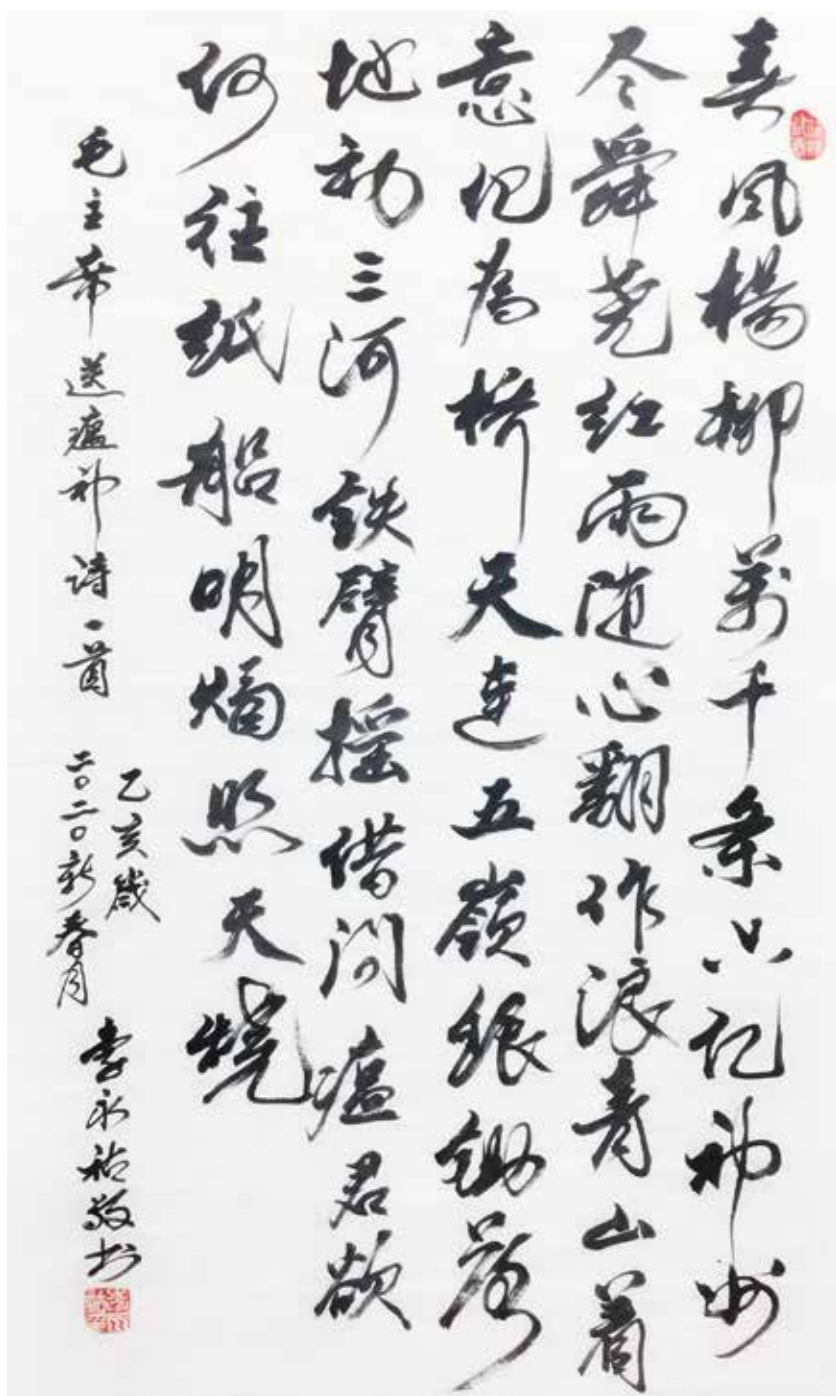 春风楊柳萬千条六记神州
尽舜尧红雨随心翻作浪青山着
意化為桥天连五嶺银锄落
地动三河铁臂摇借问瘟君欲
何往纸船明烛照天烧
毛主席送瘟神诗一首
乙亥歲
二〇二〇新春月
李永祜敬书